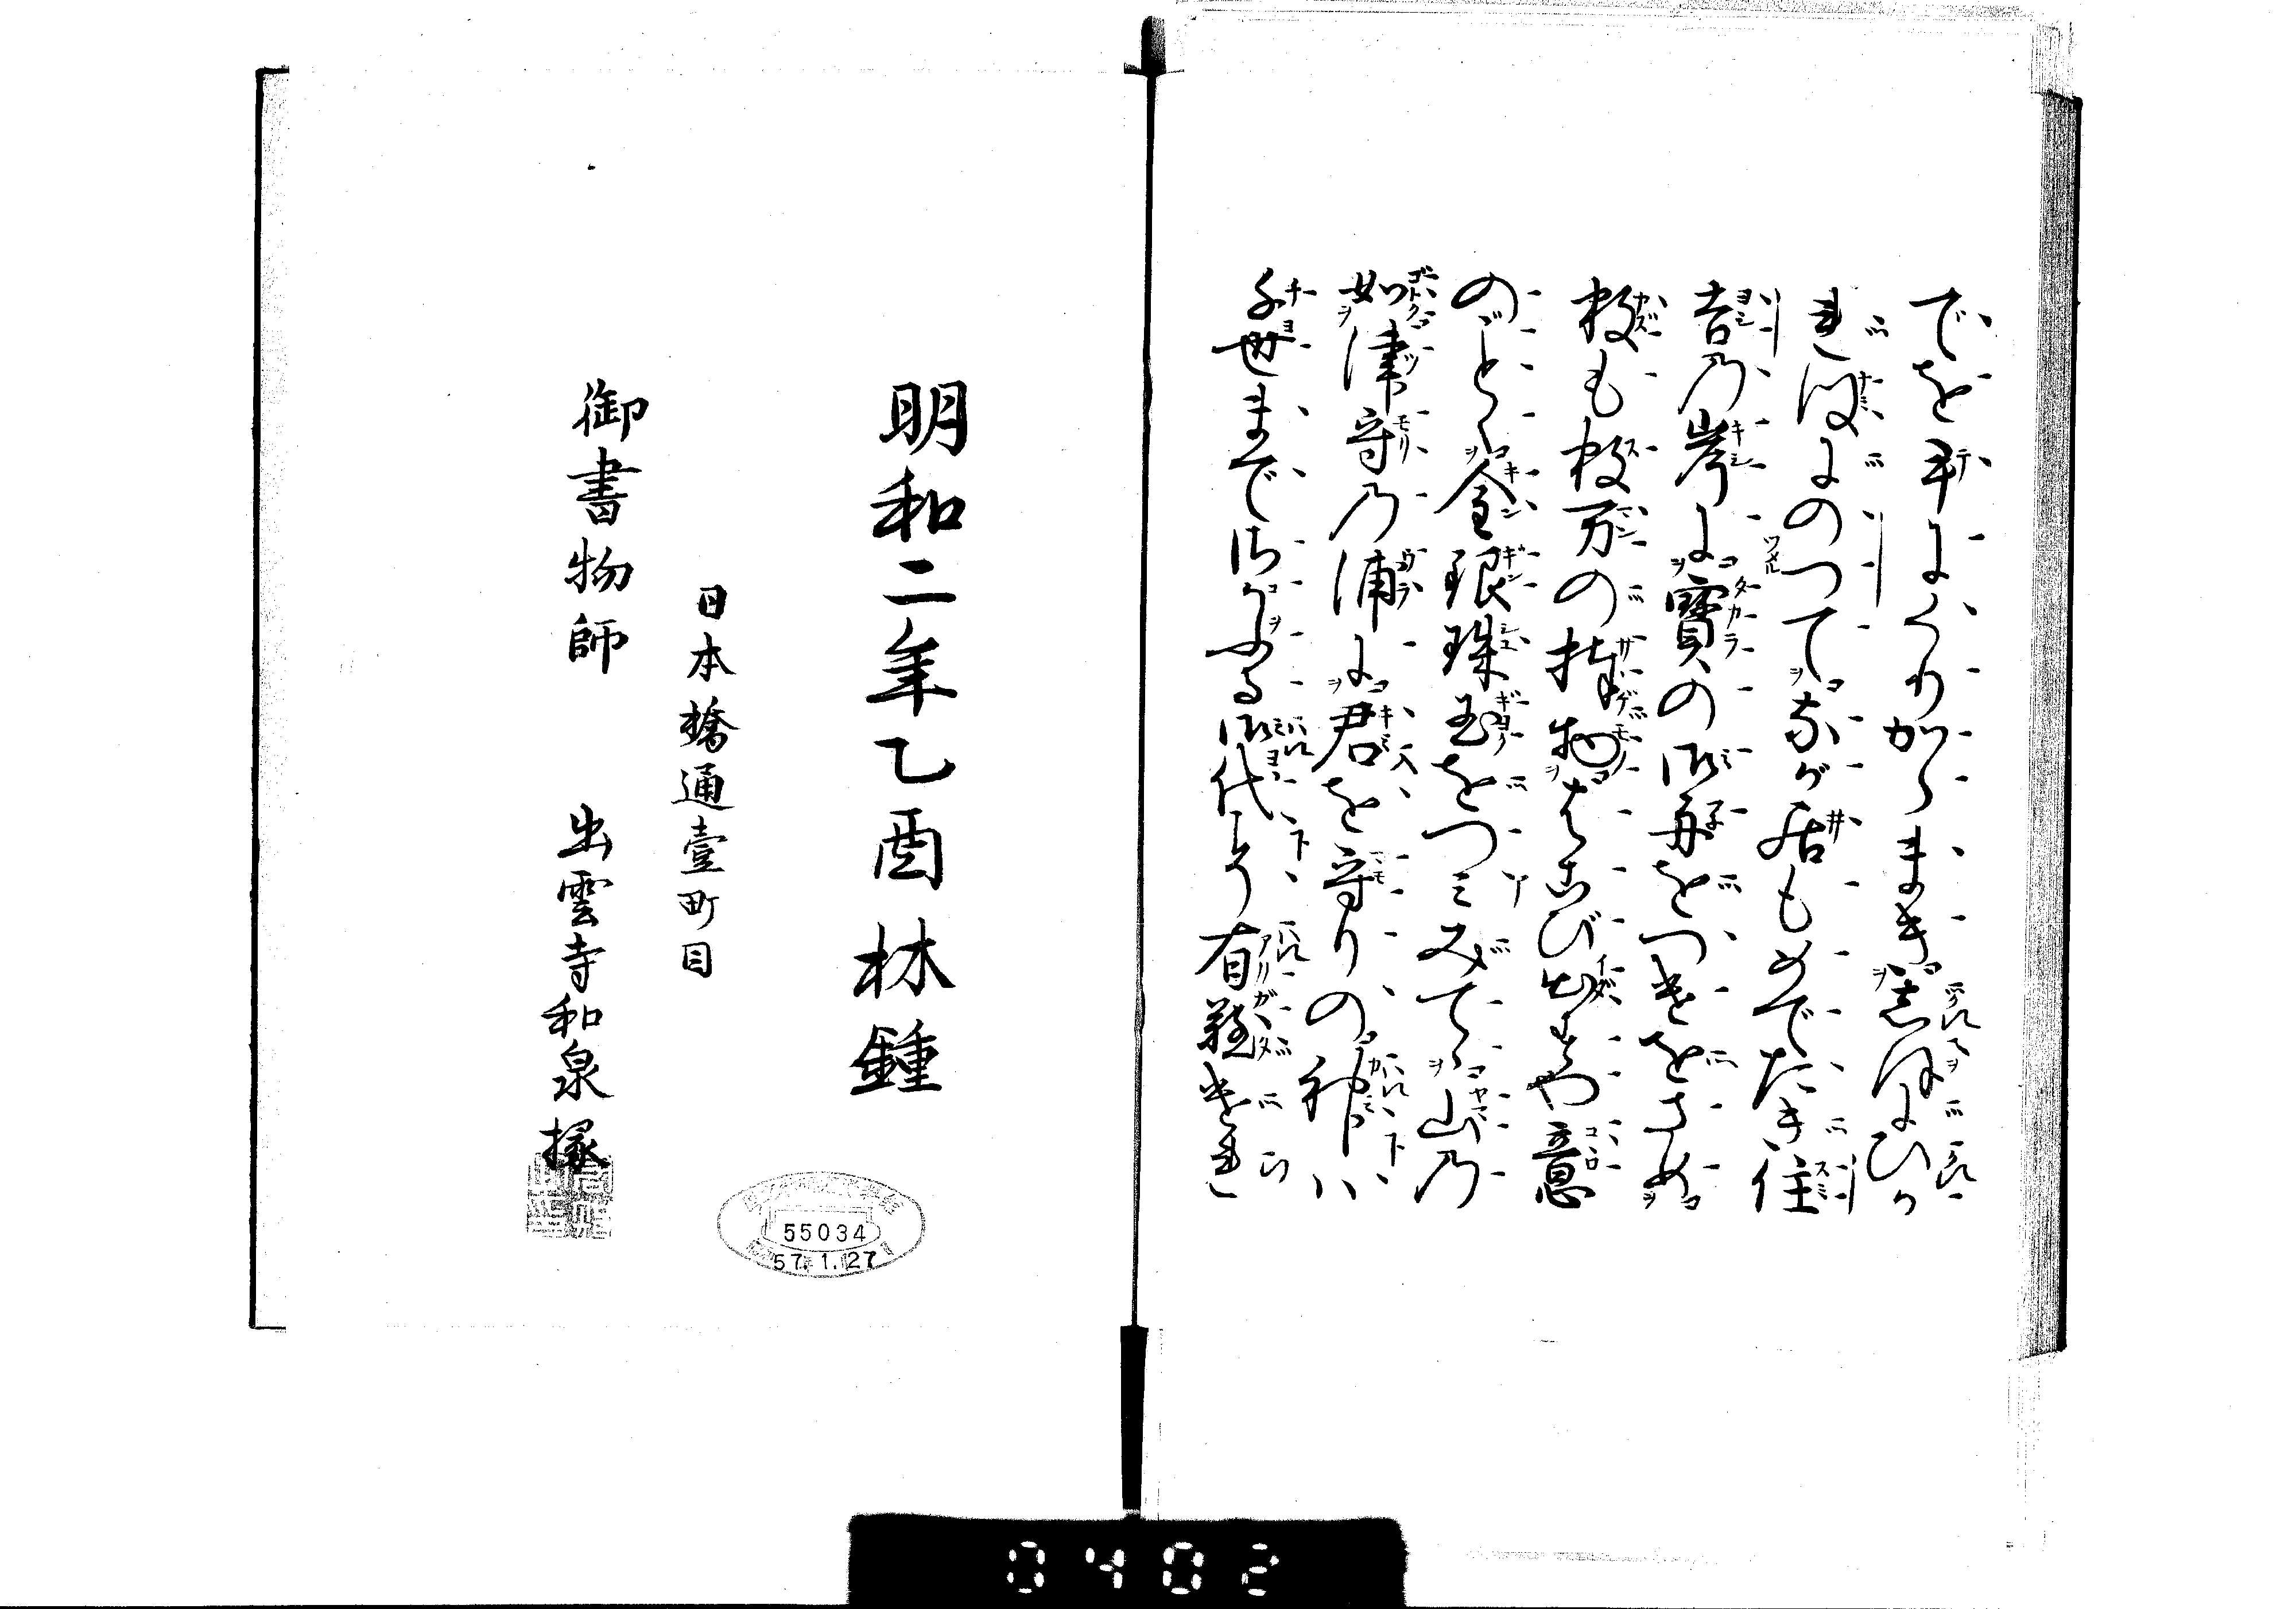 でを手にくりからまき。はほにひか
れ波にのつて。なが居もめでたき住
吉乃岸に。寶の御舟をつきをさめ。
数も数万の捧物。はこび出すや意
のごとく。金銀珠玉をつミみてゝ。山乃
如津守乃浦に。君を守りの。神ハ
千世までに。する御代とそ有難けれ
明和二年乙酉林鐘
日本橋通壹町目
御書物師 出雲寺和泉掾
55034
57.1.27
0402